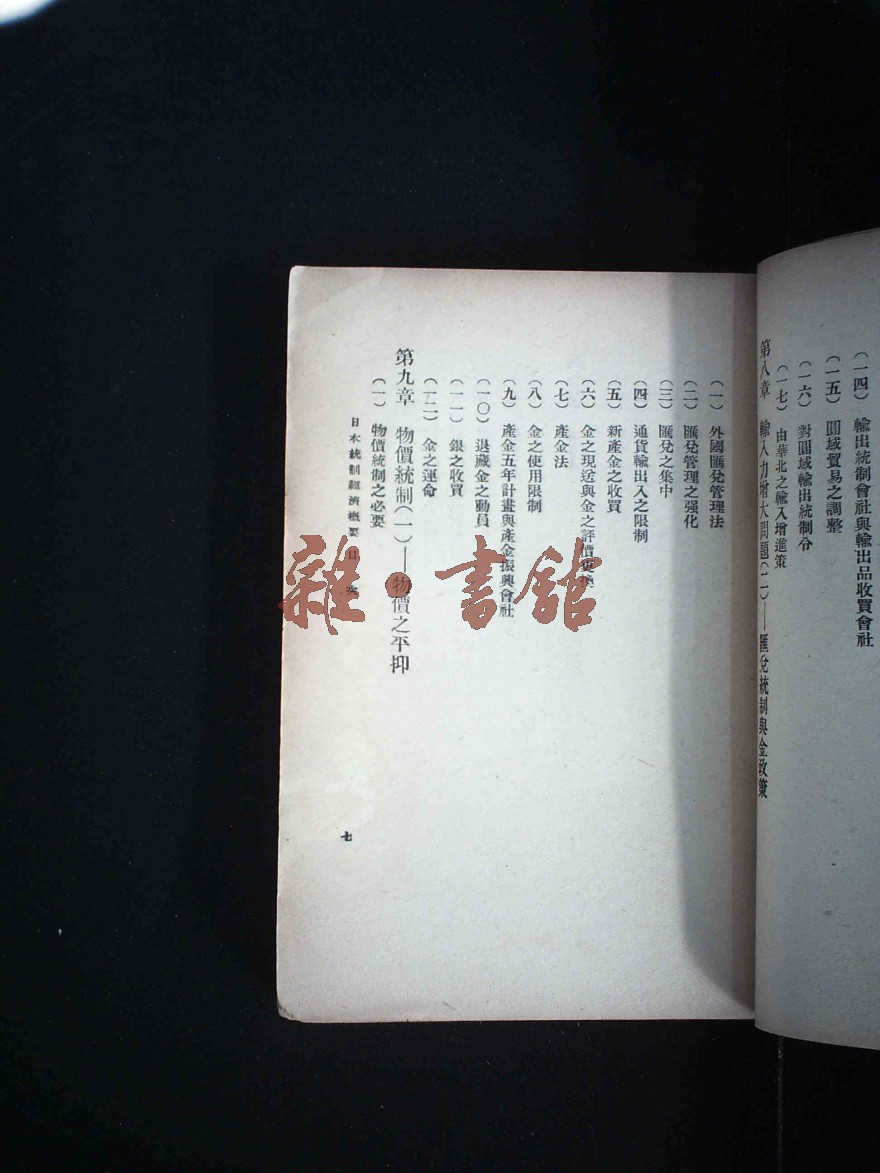 (一四) 輸出統制會社與輸出品收買會社
(一五) 圓域貿易之調整
(一六) 對圓域輸出統制令
(一七) 由華北之輸入增進策
第八章 輸入力增大問題(二)——匯兌統制與金政策
(一) 外國匯兌管理法
(二) 匯兌管理之强化
(三) 匯兌之集中
(四) 通貨輸出入之限制
(五) 新產金之收買
(六) 金之現送與金之評價更換
(七) 產金法
(八) 金之使用限制
(九) 產金五年計畫與產金振興會社
(一〇) 退藏金之動員
(一一) 銀之收買
(一二) 金之運命
第九章 物價統制(一)——物價之平抑
(一) 物價統制之必要
日本統制經濟概要 目次
七
雜·書館